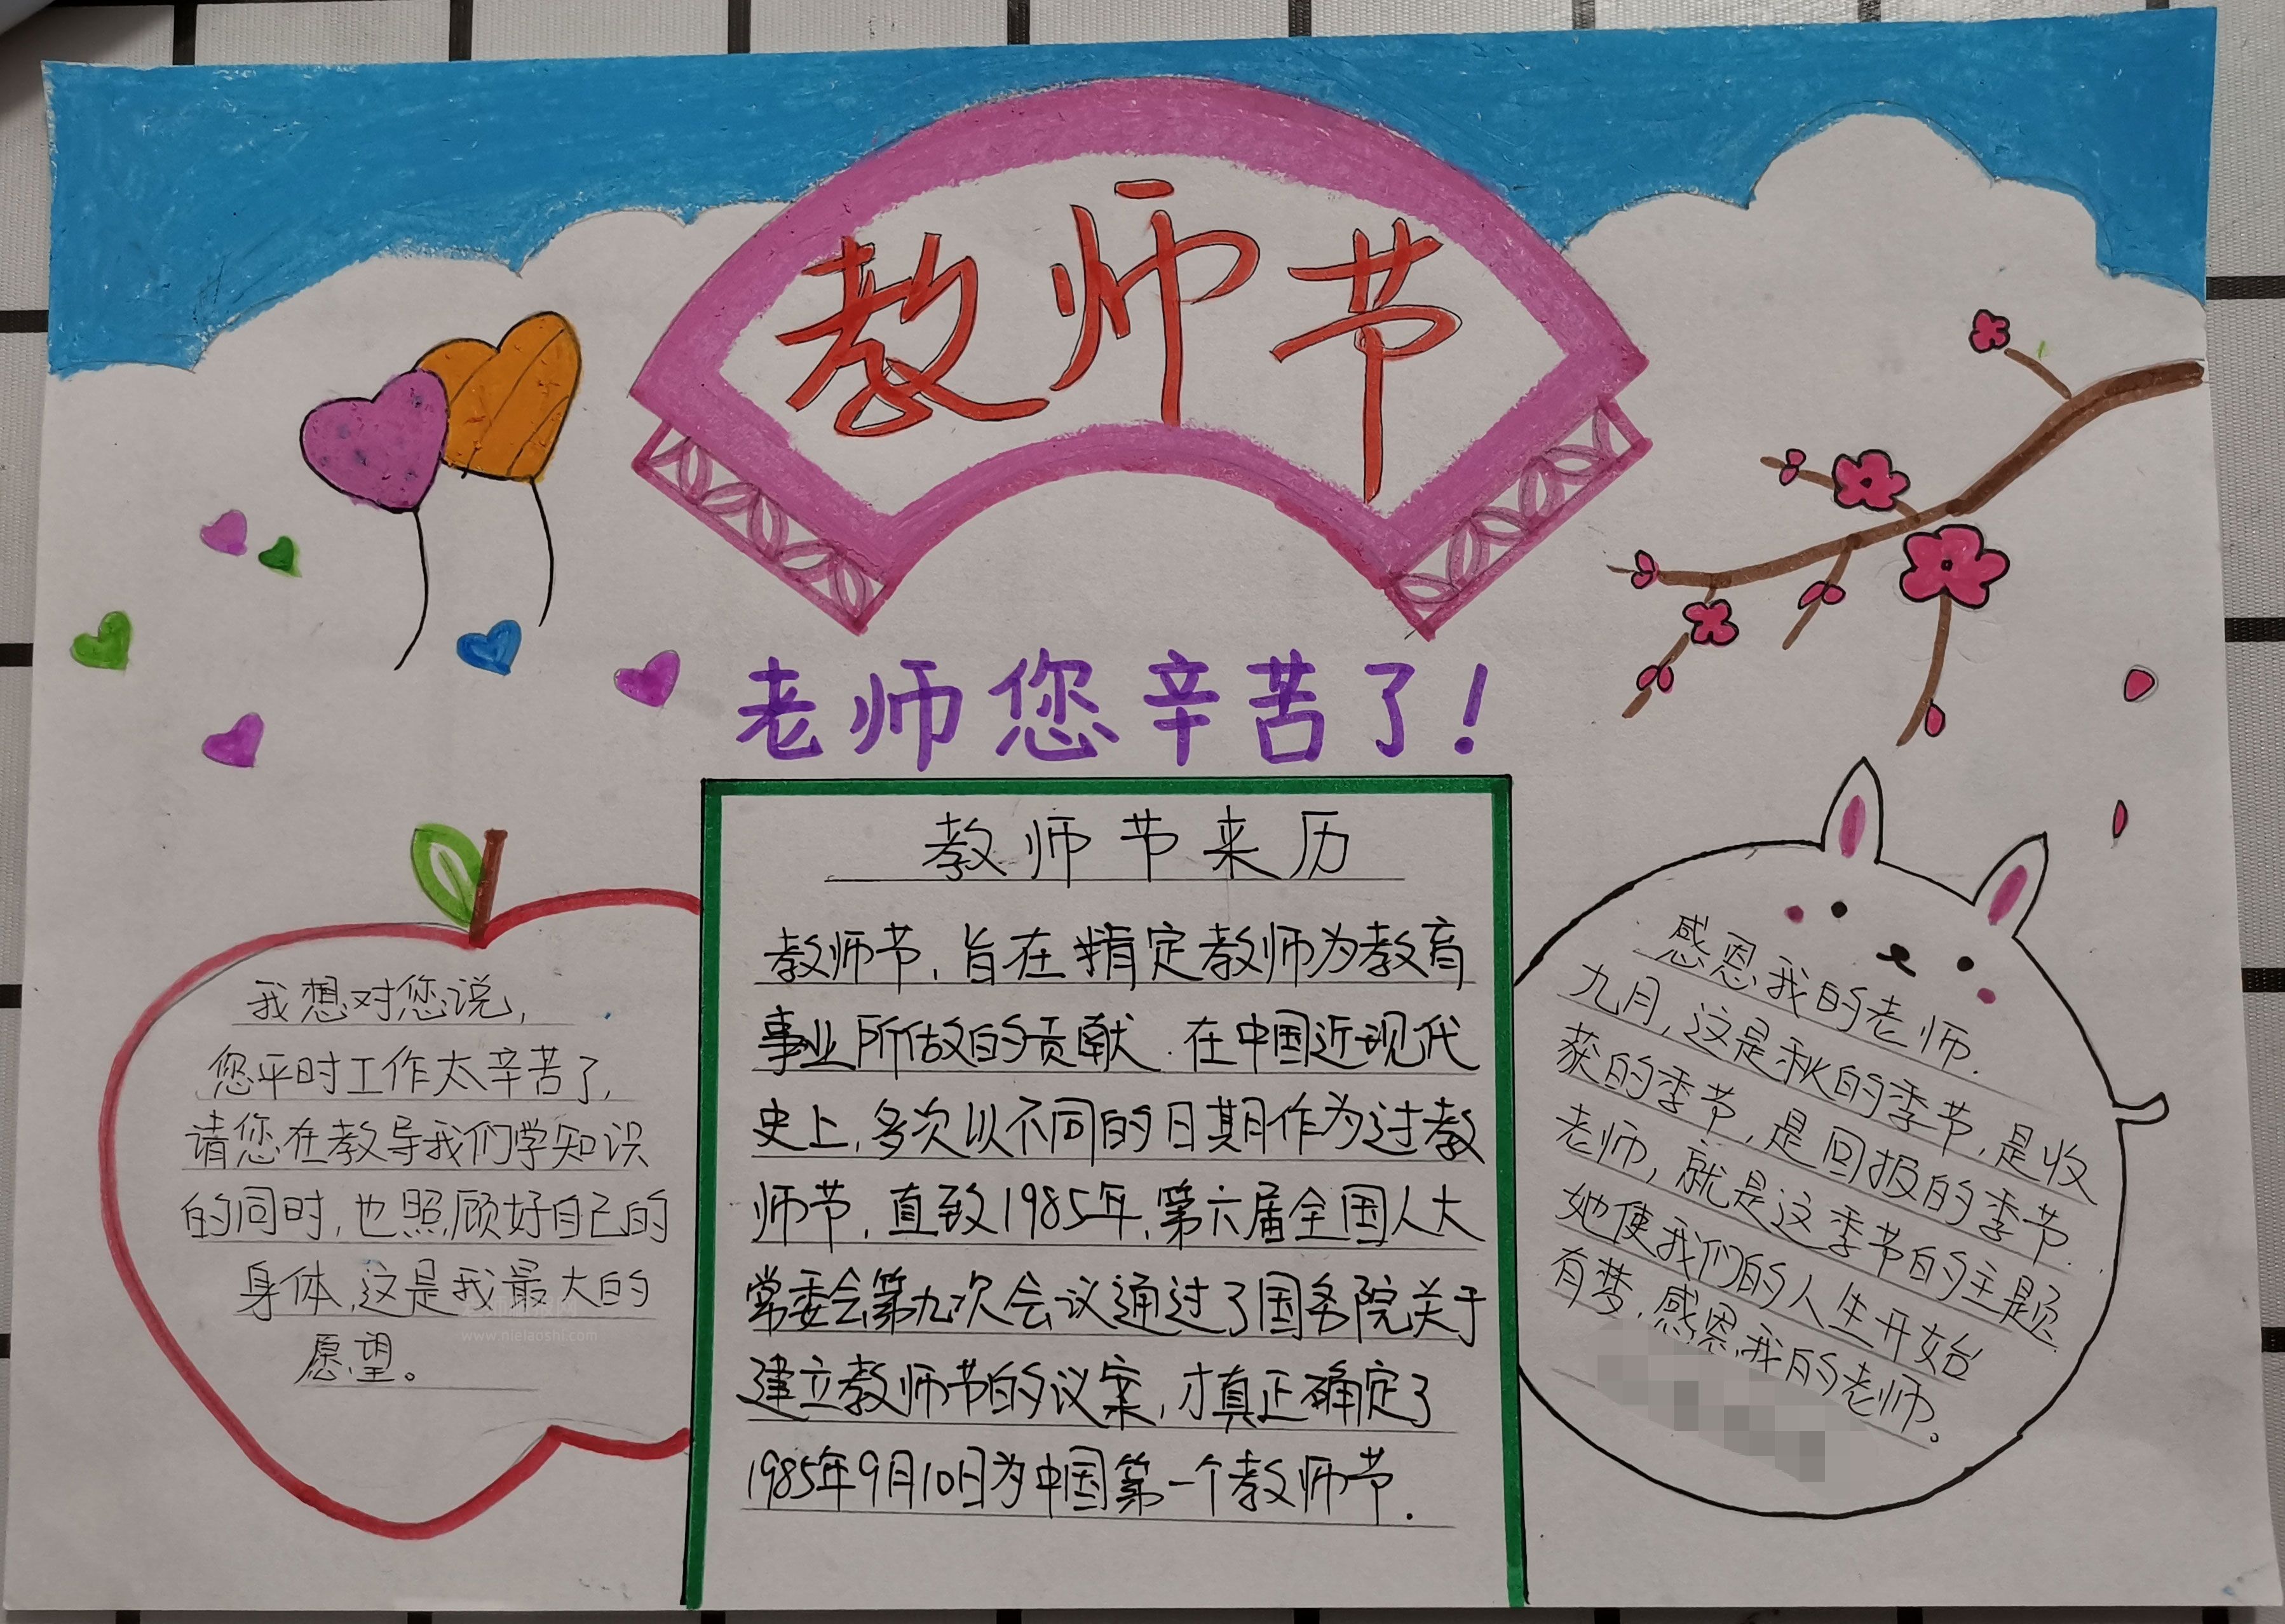 教师节
老师您辛苦了!
我想对您说,
您平时工作太辛苦了,
请您在教导我们学知识
的同时,也照顾好自己的
身体,这是我最大的
愿望。
www.nielaoshi.com
教师节来历
教师节,旨在肯定教师为教育
事业所做的贡献.在中国近现代
史上,多次以不同的日期作为过教
师节,直致1985年,第六届全国人大
常委会第九次会议通过了国务院关于
建立教师节的议案,才真正确定了
1985年9月10日为中国第一个教师节.
感恩我的老师.
九月,这是秋的季节,是收
获的季节,是回报的季节.
老师,就是这季节的主题.
她使我们的人生开始
有梦,感恩我的老师。